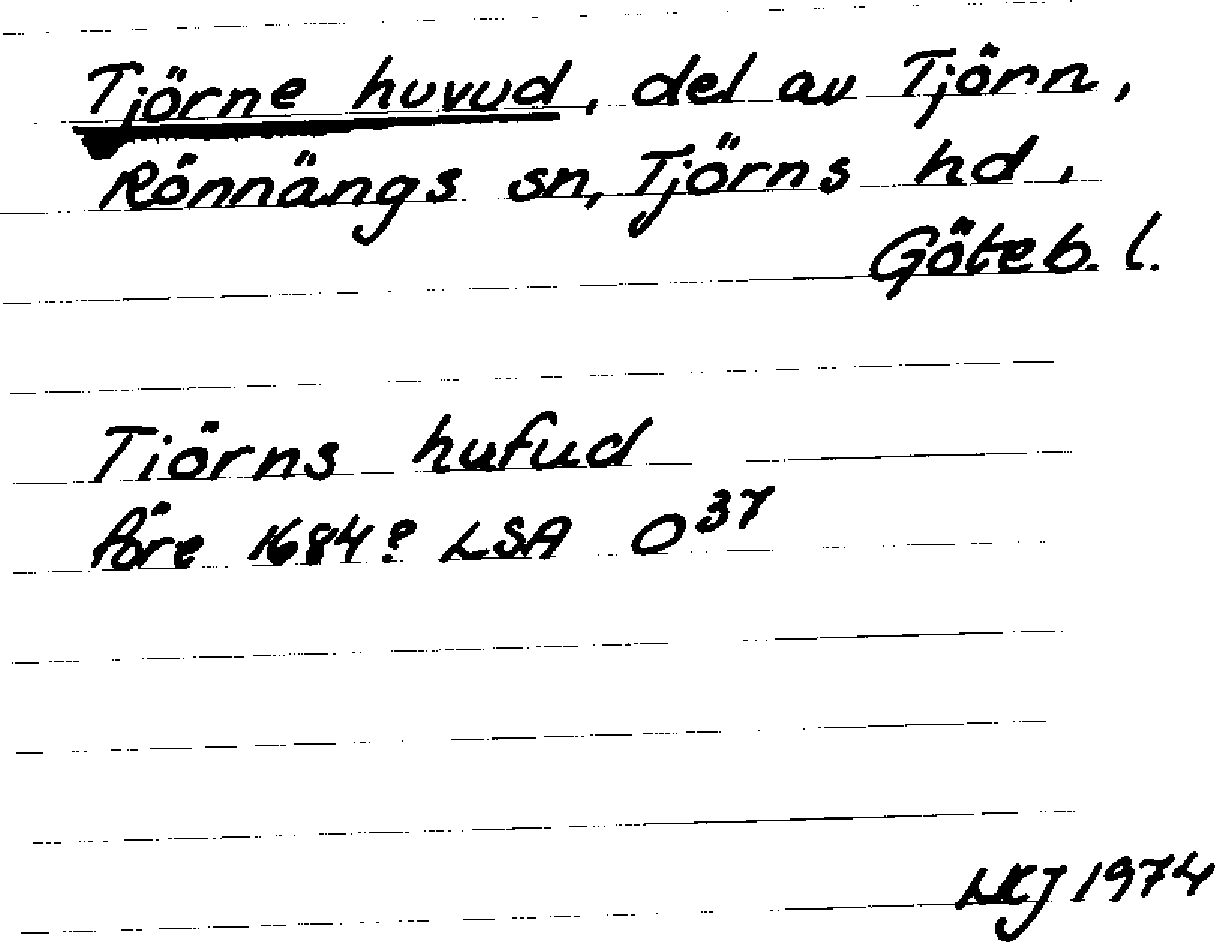 Tjörne huvud, del av Tjörn,
Rönnängs sn, Tjörns hd,
Göteb. l.
Tiörns hufud
före 1684? LSA O³⁷
LKJ 1974